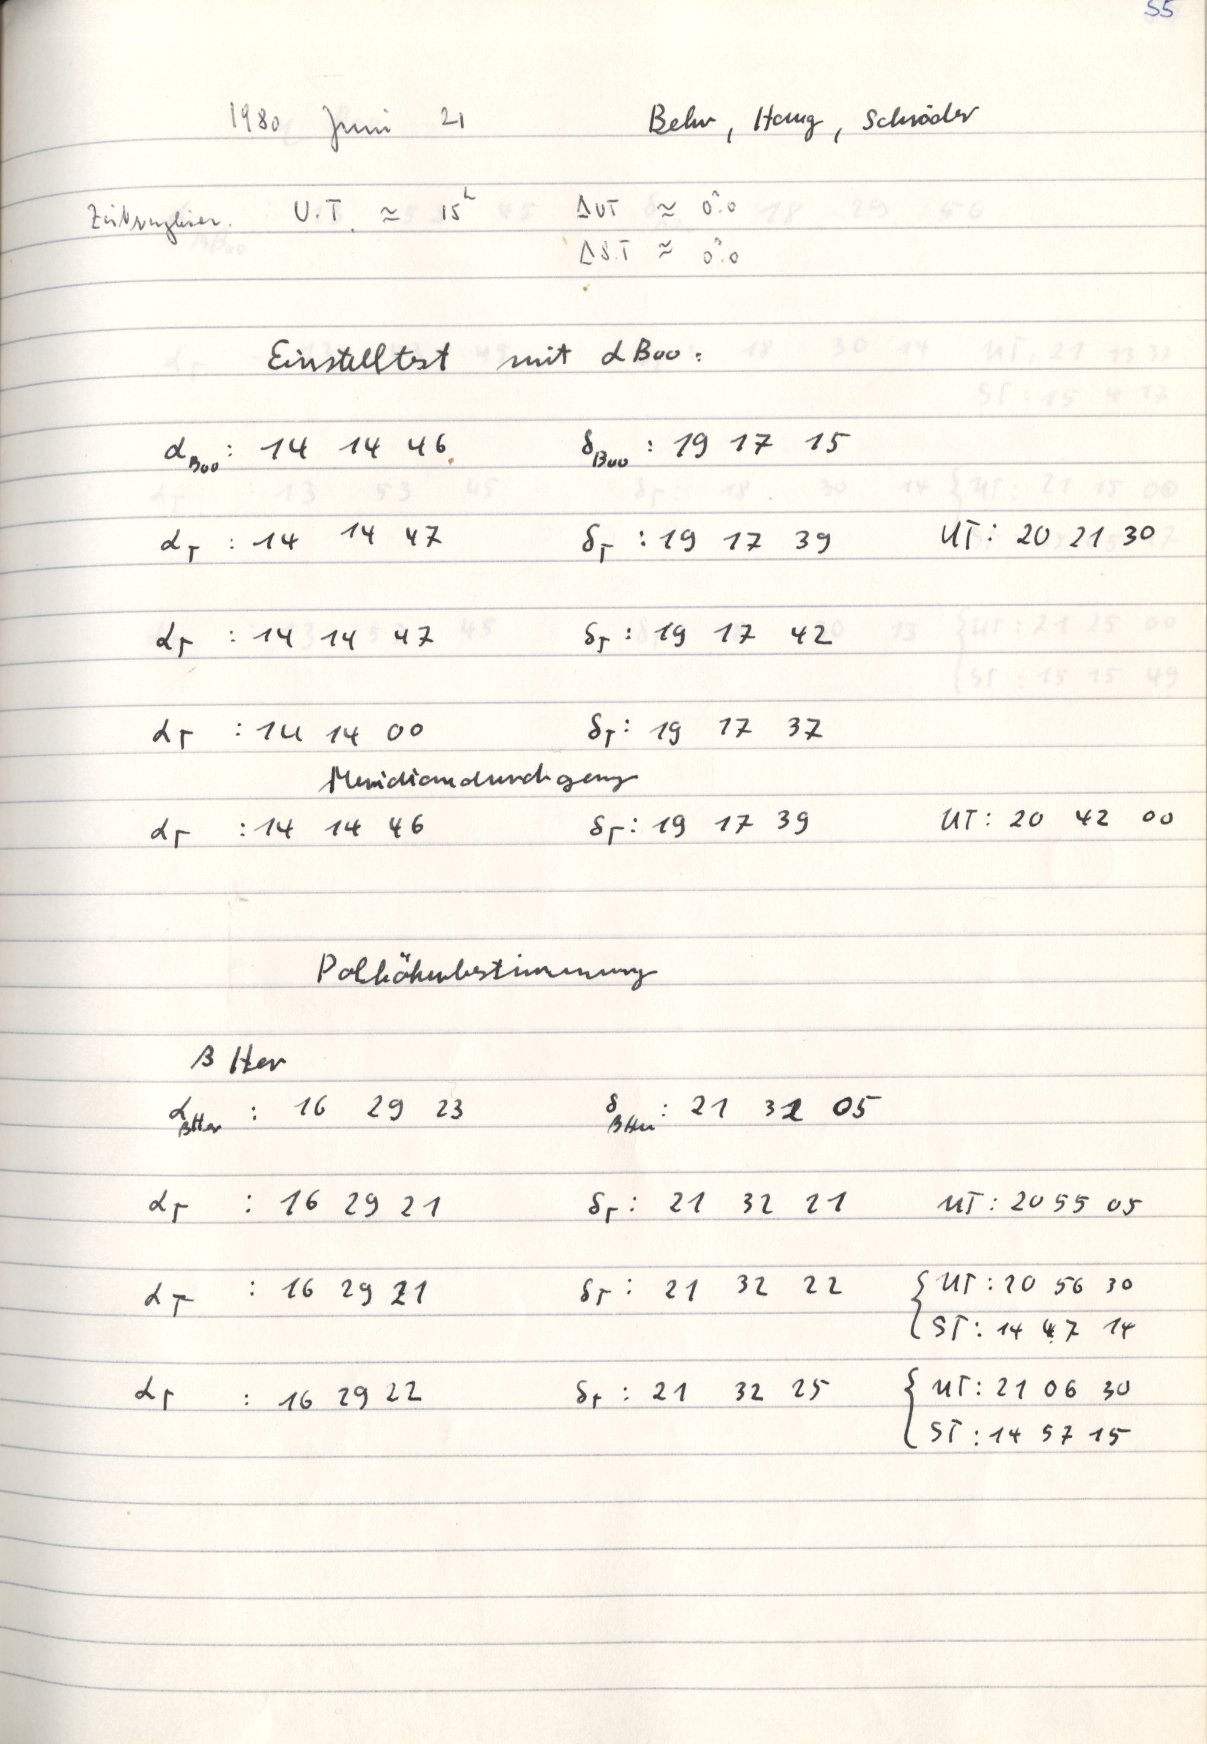 55
1980 Juni 21 Behr, Haug, Schröder
U.T. ≈ 15ʰ ΔUT ≈ 0ˢ.0
ΔS.T ≈ 0ˢ.0
Einstelltest mit α Boo:
α Boo : 14 14 46 δ Boo : 19 17 15
α T : 14 14 47 δ T : 19 17 39 UT: 20 21 30
α T : 14 14 47 δ T : 19 17 42
α T : 14 14 00 δ T : 19 17 37
Meridiandurchgang
α T : 14 14 46 δ T : 19 17 39 UT: 20 42 00
Polhöhenbestimmung
β Her
α βHer : 16 29 23 δ βHer : 21 32 05
α T : 16 29 21 δ T : 21 32 21 UT: 20 55 05
α T : 16 29 21 δ T : 21 32 22 { UT: 20 56 30
ST: 14 47 14
α T : 16 29 22 δ T : 21 32 25 { UT: 21 06 30
ST: 14 57 15